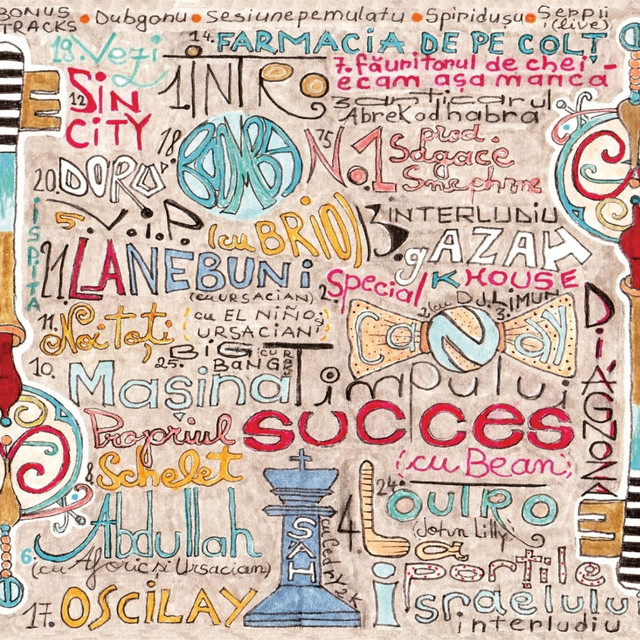 BONUS TRACKS • Dubgonu • Sesiunepemulatu • Spiridușu • Șerpii (live)
19. Vezi
14. FARMACIA DE PE COLȚ
12. SIN CITY
1. INTRO
7. făuritorul de chei -
ecam așa manca
3. anticarul
AbreKodhabra
18. BOOMBA
15 No.1
prod.
Sagace
20. DORU
5. V.i.P. (cu BRIO)
INTERLUDIU
13. gAZAH
ISPITA
21. LA NEBUNI
(cu URSACIAN)
Special K HOUSE
2. cu DJ LIMUN
11. Noi toți
cu EL NIÑO,
URSACIAN
CaNdy
DiAGNOZA
25. BIG BANG
10. Mașina Timpului
Propriul
8 Schelet
succes
(cu Bean)
24. OUTRO
(John Lilly)
6. Abdullah
(cu Aforic și Ursacian)
ȘAH
cu Ced ry2k
4. La porțile
israelului
interludiu
17. OSCILAY